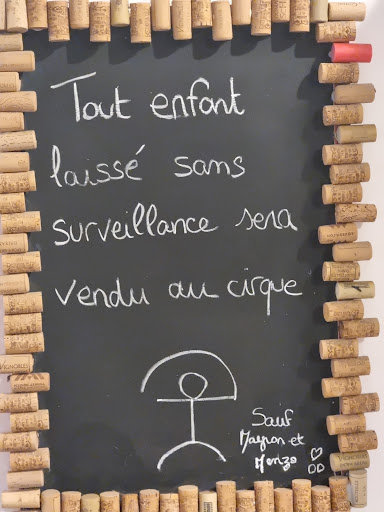 Tout enfant
laissé sans
surveillance sera
vendu au cirque
Sauf
et